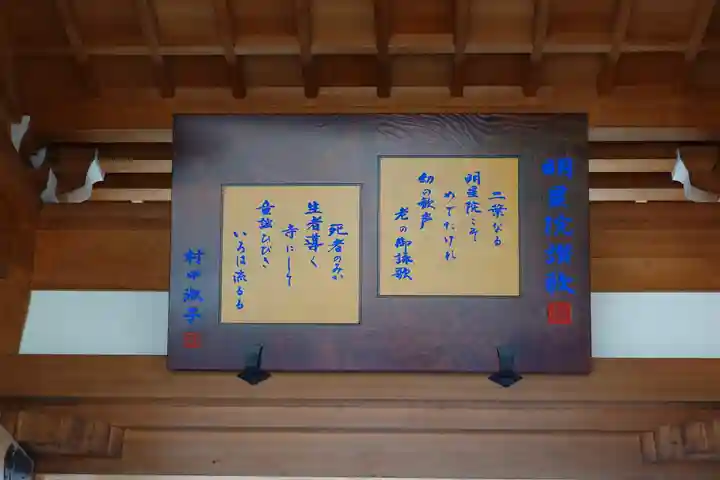 明星院讃歌
二葉なる
明星院こそ
めでたけれ
幼の歌声
老の御詠歌
死者のみか
寺にして
生者導く
童謡ひびき
いろは流るる
村田淑子